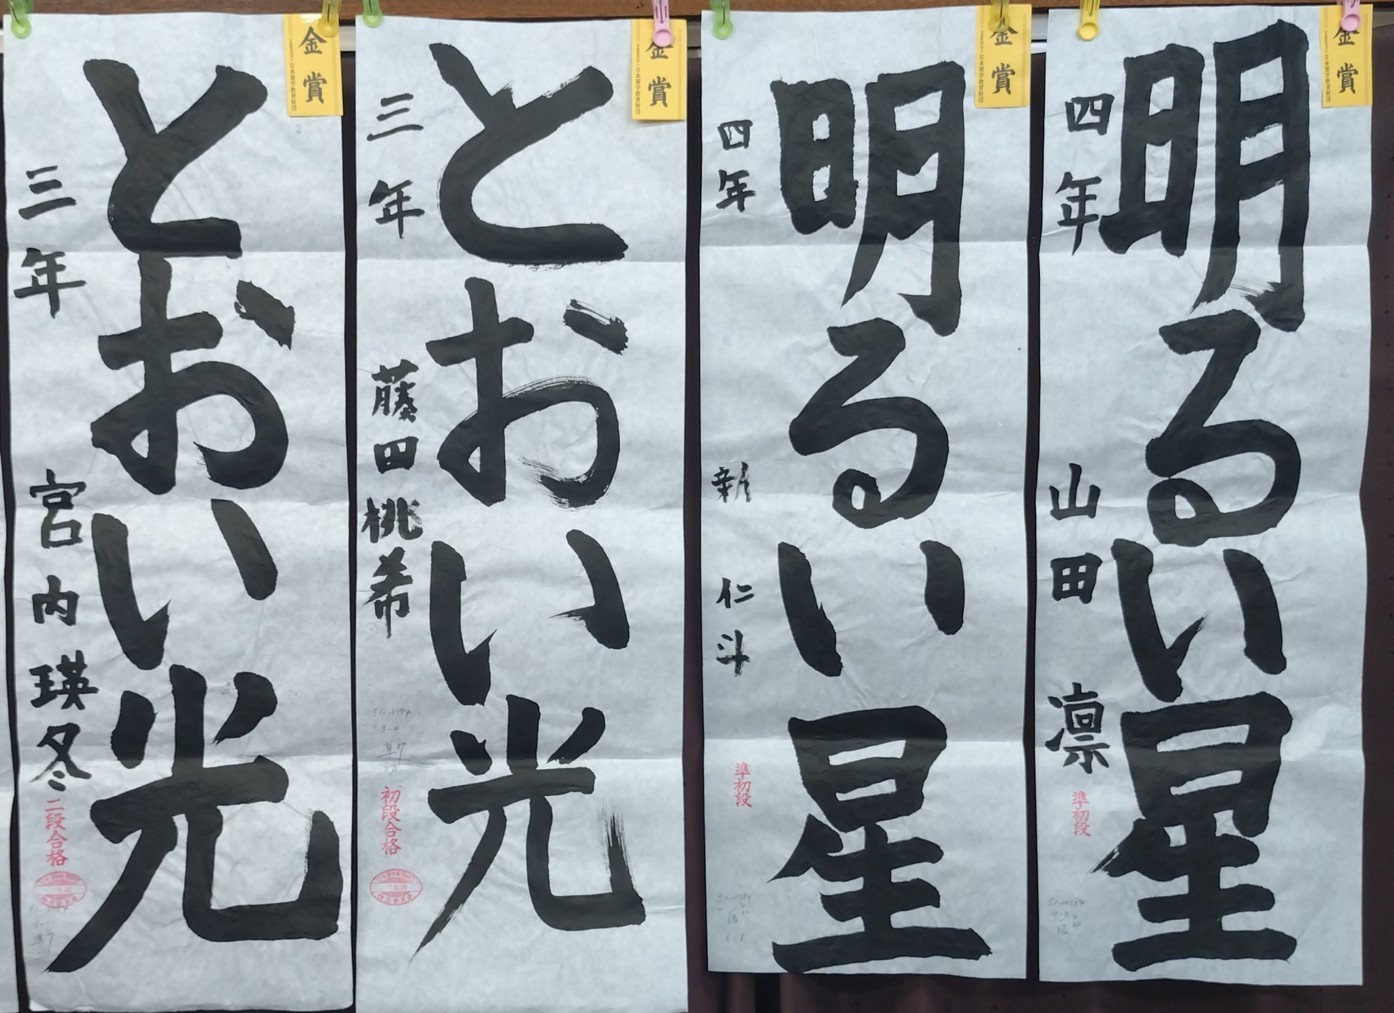 金賞
明るい星
四年 山田 凛
準初段
金賞
明るい星
四年 新 仁斗
準初段
金賞
とおい光
三年 藤田桃希
初段合格
金賞
とおい光
三年 宮内瑛冬
二段合格